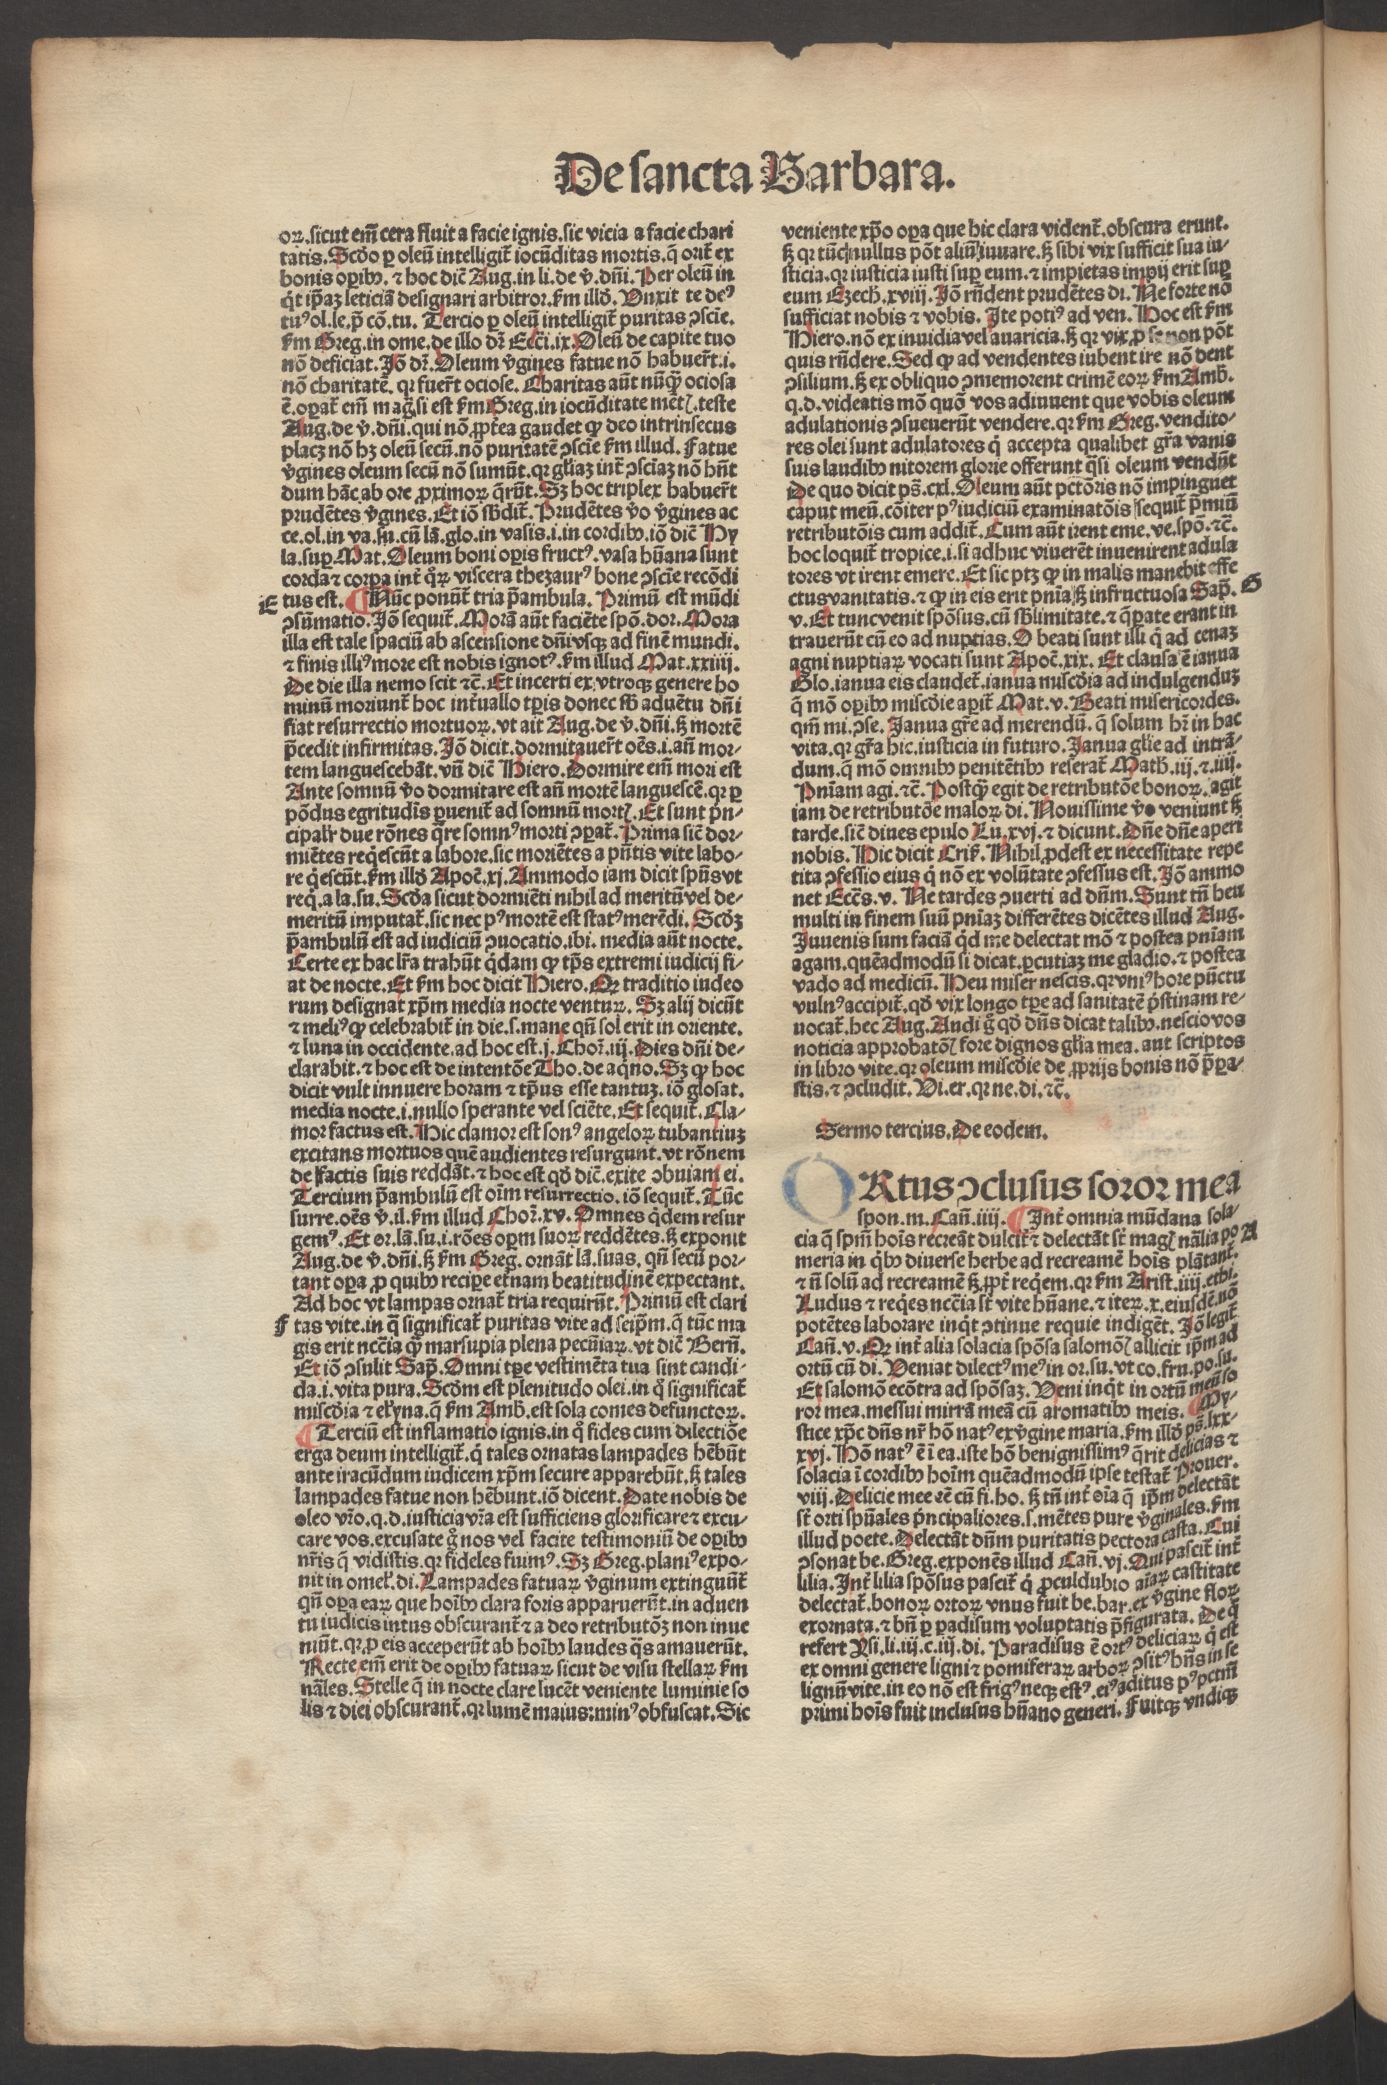 De sancta Barbara.
oꝝ. sicut em̄ cera fluit a facie ignis. sic vicia a facie chari
tatis. Scd̓o ꝑ oleū intelligit̄ iocūditas mortis. q̄ orit̄ ex
bonis oꝑibꝰ. ⁊ hoc dic̄ Aug. in li. de v̓. dn̄i. Per oleū in
q̇t ip̄az leticiā designari arbitror. ẜm illd̓. Vnxit te deꝰ
tuꝰ ol. le. p̄ cō. tu. Tercio ꝑ oleū intelligit̄ puritas ↄscīe.
ẜm Greg. in ome. de illo dr̄ Ecci. ix. Oleū de capite tuo
nō deficiat. Jō dr̄. Oleum v̓gines fatue nō habuer̄t. i.
nō charitatē. qꝛ fuer̄t ociose. Charitas aūt nūq̄ꝫ ociosa
ē. oꝑat̄ em̄ magͣ si est ẜm Greg. in iocūditate mēt. teste
Aug. de v̓. dn̄i. qui nō ꝓpt̄ea gaudet qꝫ deo intrinsecus
placꝫ nō hꝫ oleū secū. nō puritatē ↄscīe ẜm illud. Fatue
v̓gines oleum secū nō sumūt. qꝛ gl̓iaz int̄ ↄsciaz nō hn̄t
dum hāc ab ore ꝓximoꝝ q̄rūt. Sꝫ hoc triplex habuer̄t
prudētes v̓gines. Et iō sb̓dit̄. Prudētes v̓o v̓gines ac
ce. ol. in va. su. cū lā. glo. in vasis. i. in cordibꝰ. iō dic̄ Hy
la. suꝑ Mat. Oleum boni oꝑis fructꝰ. vasa hūana sunt
corda ⁊ corpa int̄ q̊ꝝ viscera thezaurꝰ bone ↄscīe recōdi
E tus est. ¶ Nūc ponūt̄ tria p̄ambula. Primū est mūdi
ↄsūmatio. Jō sequit̄. Morā aūt faciēte spō. dor. Mora
illa est tale spaciū ab ascensione dn̄i vsqꝫ ad finē mundi.
⁊ finis illiꝰ more est nobis ignotꝰ. ẜm illud Mat. xxiiij.
De die illa nemo scit ⁊c̄. Et incerti ex vtroqꝫ genere ho
minū moriunt̄ hoc int̄uallo tꝑis donec sb̓ aduētu dn̄i
fiat resurrectio mortuoꝝ. vt ait Aug. de v̓. dn̄i. sꝫ mortē
p̄cedit infirmitas. Jō dicit. dormitauer̄t oēs. i. an̄ mor-
tem languescebāt. vn̄ dic̄ Hiero. Dormire em̄ mori est
Ante somnū v̓o dormitare est an̄ mortē languescē. qꝛ ꝑ
pōdus egritudīs ꝑuenit̄ ad somnū mort. Et sunt p̓n-
cipalr̄ due rōnes q̄re somnꝰ morti ↄꝑat̄. Prima sic̄ dor-
miētes req̇escūt a labore. sic moriētes a pn̄tis vite labo-
re q̇escūt. ẜm illd̓ Apoc̄. xj. Ammodo iam dicit spūs vt
req̇. a la. su. Scd̓a sicut dormiēti nihil ad meritū vel de-
meritū imputat̄. sic nec pꝰ mortē est statꝰ merēdi. Scd̓ꝫ
p̄ambulū est ad iudiciū ↄuocatio. ibi. media aūt nocte.
Certe ex hac lr̄a trahūt q̇dam qꝫ tp̄s extremi iudicij fi-
at de nocte. Et ẜm hoc dicit Hiero. Qꝫ traditio iudeo
rum designat xp̄m media nocte venturꝝ. Sꝫ alij dicūt
⁊ meliꝰ qꝫ celebrabit̄ in die. s. mane qn̄ sol erit in oriente.
⁊ luna in occidente. ad hoc est. j. Chor̄. iij. Dies dn̄i de-
clarabit. ⁊ hoc est de intentōe Tho. de aq̇no. Sꝫ qꝫ hoc
dicit vult innuere horam ⁊ tp̄us esse tantuꝫ. iō glosat.
media nocte. i. nullo sperante vel sciēte. Et sequit̄. Cla-
mor factus est. Hic clamor est sonꝰ angeloꝝ tubantiuꝫ
excitans mortuos quē audientes resurgunt. vt rōnem
de factis suis reddāt. ⁊ hoc est qd̓ dic̄. exite ↄbuiam ei.
Tercium p̄ambulū est oīm resurrectio. iō sequit̄. Tūc
surre. oēs v̓. il. ẜm illud Chor̄. xv. Omnes q̇dem resur
gemꝰ. Et or. lā. su. i. rōes oꝑm suoꝝ reddētes. sꝫ exponit
Aug. de v̓. dn̄i. sꝫ ẜm Greg. ornāt lā. suas. qn̄ secū por-
tant oꝑa ꝓ quibꝰ recipe et̓nam beatitudinē expectant.
Ad hoc vt lampas ornat̄ tria requirūt̄. Primū est clari
F tas vite. in q̄ significat̄ puritas vite ad seip̄m. q̄ tūc ma
gis erit nc̄cīa q̄ꝫ marsupia plena pecūiaꝝ. vt dic̄ Bern̄.
Et iō ↄsulit Sap̄. Omni tꝑe vestimēta tua sint candi-
da. i. vita pura. Scd̓m est plenitudo olei. in q̊ significat̄
miscd̓ia ⁊ elyna. q̄ ẜm Amb̓. est sola comes defunctoꝝ.
¶ Terciū est inflamatio ignis. in q̊ fides cum dilectiōe
erga deum intelligit̄. q̇ tales ornatas lampades hēbūt
ante iracūdum iudicem xp̄m secure apparebūt. sꝫ tales
lampades fatue non hēbunt. iō dicent. Date nobis de
oleo vr̄o. q. d. iusticia vr̄a est sufficiens glorificare ⁊ excu-
care vos. excusate g̊ nos vel facite testimoniū de oꝑibꝰ
nr̄is q̄ vidistis. qꝛ fideles fuimꝰ. Sꝫ Greg. planiꝰ expo-
nit in omel̓. di. Lampades fatuaꝝ v̓ginum extinguūt̄
qn̄ oꝑa eaꝝ que hoībꝰ clara foris apparuerūt. in aduen
tu iudicis intus obscurant̄ ⁊ a deo retributōꝫ non inue
niūt. qꝛ ꝓ eis acceperūt ab hoībꝰ laudes q̄s amauerūt.
Recte em̄ erit de oꝑibꝰ fatuaꝝ sicut de visu stellaꝝ ẜm
nāles. Stelle q̄ in nocte clare lucēt veniente luminie so
lis ⁊ diei obscurant̄. qꝛ lumē maius: minꝰ obfuscat. Sic
veniente xp̄o oꝑa que hic clara vident̄. obscura erunt.
sꝫ qꝛ tūc nullus pōt aliū iuuare. sꝫ sibi vix sufficit sua iu-
sticia. qꝛ iusticia iusti suꝑ eum. ⁊ impietas impij erit suꝑ
eum Ezech. xviij. Jō rn̄dent prudētes di. Ne forte nō
sufficiat nobis ⁊ vobis. Jte potiꝰ ad ven. Hoc est ẜm
Hiero. nō ex inuidia vel auaricia. sꝫ qꝛ vix ꝓ se non pōt
quis rn̄dere. Sed qꝫ ad vendentes iubent ire nō dent
ↄsilium. sꝫ ex obliquo ↄmemorent crimē eoꝝ ẜm Amb̓.
q. d. videatis mō quō vos adiuuent que vobis oleum
adulationis ↄsueuerūt vendere. qꝛ ẜm Greg. vendito-
res olei sunt adulatores q̇ accepta qualibet gr̄a vanis
suis laudibꝰ nitorem glorie offerunt q̄si oleum vendūt
De quo dicit ps̄. cxl. Oleum aūt pctōris nō impinguet
caput meū. cōiter pꝰ iudiciū examinatōis sequit̄ p̄miū
retributōis cum addit̄. Cum aūt irent eme. ve. spō. ⁊c̄.
hoc loquit̄ tropice. i. si adhuc viuerēt inuenirent adula
tores vt irent emere. Et sic ptꝫ qꝫ in malis manebit effe
ctus vanitatis. ⁊ qꝫ in eis erit pnīa sꝫ infructuosa Sap̄. G
v. Et tunc venit spōsus. cū sb̓limitate. ⁊ q̄ ꝑate erant in
trauerūt cū eo ad nuptias. O beati sunt illi q̇ ad cenaꝫ
agni nuptiaꝝ vocati sunt Apoc̄. xix. Et clausa ē ianua
Glo. ianua eis claudet̄. ianua miscd̓ia ad indulgenduꝫ
q̄ mō oꝑibꝰ miscd̓ie aꝑit̄ Mat. v. Beati misericordes.
qm̄ mi. ↄse. Janua gr̄e ad merendū. q̄ solum hr̄ in hac
vita. qꝛ gr̄a hic. iusticia in futuro. Janua gl̓ie ad intrā-
dum. q̄ mō omnibꝰ penitētibꝰ reserat̄ Math. iij. ⁊ iiij.
Pnīam agi. ⁊c̄. Postq̄ꝫ egit de retributōe bonoꝝ. agit
iam de retributōe maloꝝ di. Nouissime v̓o veniunt sꝫ
tarde. sic̄ diues epulo Lu. xvj. ⁊ dicunt. Dn̄e dn̄e aperi
nobis. Hic dicit Cris̓. Nihil ꝓdest ex necessitate repe
tita ↄfessio eius q̇ nō ex volūtate ↄfessus est. Jō ammo
net Eccs̄. v. Ne tardes ↄuerti ad dūm. Sunt tn̄ heu
multi in finem suū pnīaz differētes dicētes illud Aug.
Juuenis sum faciā q̇d me delectat mō ⁊ postea pnīam
agam. quēadmodū si dicat. ꝑcutiaꝫ me gladio. ⁊ postea
vado ad medicū. Heu miser nescis. qꝛ vniꝰ hore pūctu
vulnꝰ accipit̄. qd̓ vix longo tꝑe ad sanitatē p̓stinam re-
uocat̄. hec Aug. Audi g̊ qd̓ dn̄s dicat talibꝰ. nescio vos
noticia approbatō fore dignos gl̓ia mea. aut scriptos
in libro vite. qꝛ oleum miscd̓ie de ꝓprijs bonis nō p̄ꝑa-
stis. ⁊ ↄcludit. Vi. er. qꝛ ne. di. ⁊c̄.
Sermo tercius. De eodem.
ORtus ↄclusus soror mea
spon. m. Can̄. iiij. ¶ Jnt̄ omnia mūdana sola-
cia q̄ spm̄ hoīs recreāt dulcit̄ ⁊ delectāt st̄ mag nālia po A
meria in q̇bꝰ diuerse herbe ad recreamē hoīs plātant̄.
⁊ n̄ solū ad recreamē sꝫ ꝓpt̄ req̇em. qꝛ ẜm Arist. iiij. ethi.
Ludus ⁊ req̇es nc̄cīa st̄ vite hūane. ⁊ iteꝝ. x. eiusdē. nō
potētes laborare inq̇t ↄtinue requie indigēt. Jō legit̄
Can̄. v. Qꝫ int̄ alia solacia spōsa salomō allicit ip̄m ad
ortū cū di. Veniat dilectꝰ meꝰ in or. su. vt co. fru. po. su.
Et salomō ecōtra ad spōsaꝫ. Veni inq̇t in ortū meū so
ror mea. messui mirrā meā cū aromatibꝰ meis. ¶ My-
stice xp̄c dn̄s nr̄ hō natꝰ ex v̓gine maria. ẜm illd̓ ps̄. lxx-
xvj. Hō natꝰ ē ī ea. iste hō benignissimꝰ q̄rit delicias ⁊
solacia ī cordibꝰ hoīm quēadmodū ipse testat̄ Prouer.
viij. Delicie mee eē cū fi. ho. sꝫ tn̄ int̄ oīa q̄ ip̄m delectāt
st̄ orti spūales p̓ncipaliores. s. mētes pure v̓ginales. ẜm
illud poete. Delectāt dūm puritatis pectora casta. Cui
ↄsonat be. Greg. exponēs illud Can̄. vj. Qui pascit̄ int̄
lilia. Jnt̄ lilia spōsus pascit̄ q̇ ꝓculdubio aīaꝝ castitate
delectat̄. bonoꝝ ortoꝝ vnus fuit be. bar. ex v̓gine floꝝ
exornata. ⁊ bn̄ ꝑ ꝑadisum voluptatis p̄figurata. De q̊
refert Ysi. li. iij. c. iij. di. Paradisus ē ortꝰ deliciaꝝ q̇ est
ex omni genere ligni ⁊ pomiferaꝝ arboꝝ ↄsitꝰ hn̄s in se
lignū vite. in eo nō est frigꝰ neqꝫ estꝰ. eiꝰ aditus pꝰ pctm̄
primi hoīs fuit inclusus hūano generi. Fuitqꝫ vndiqꝫ